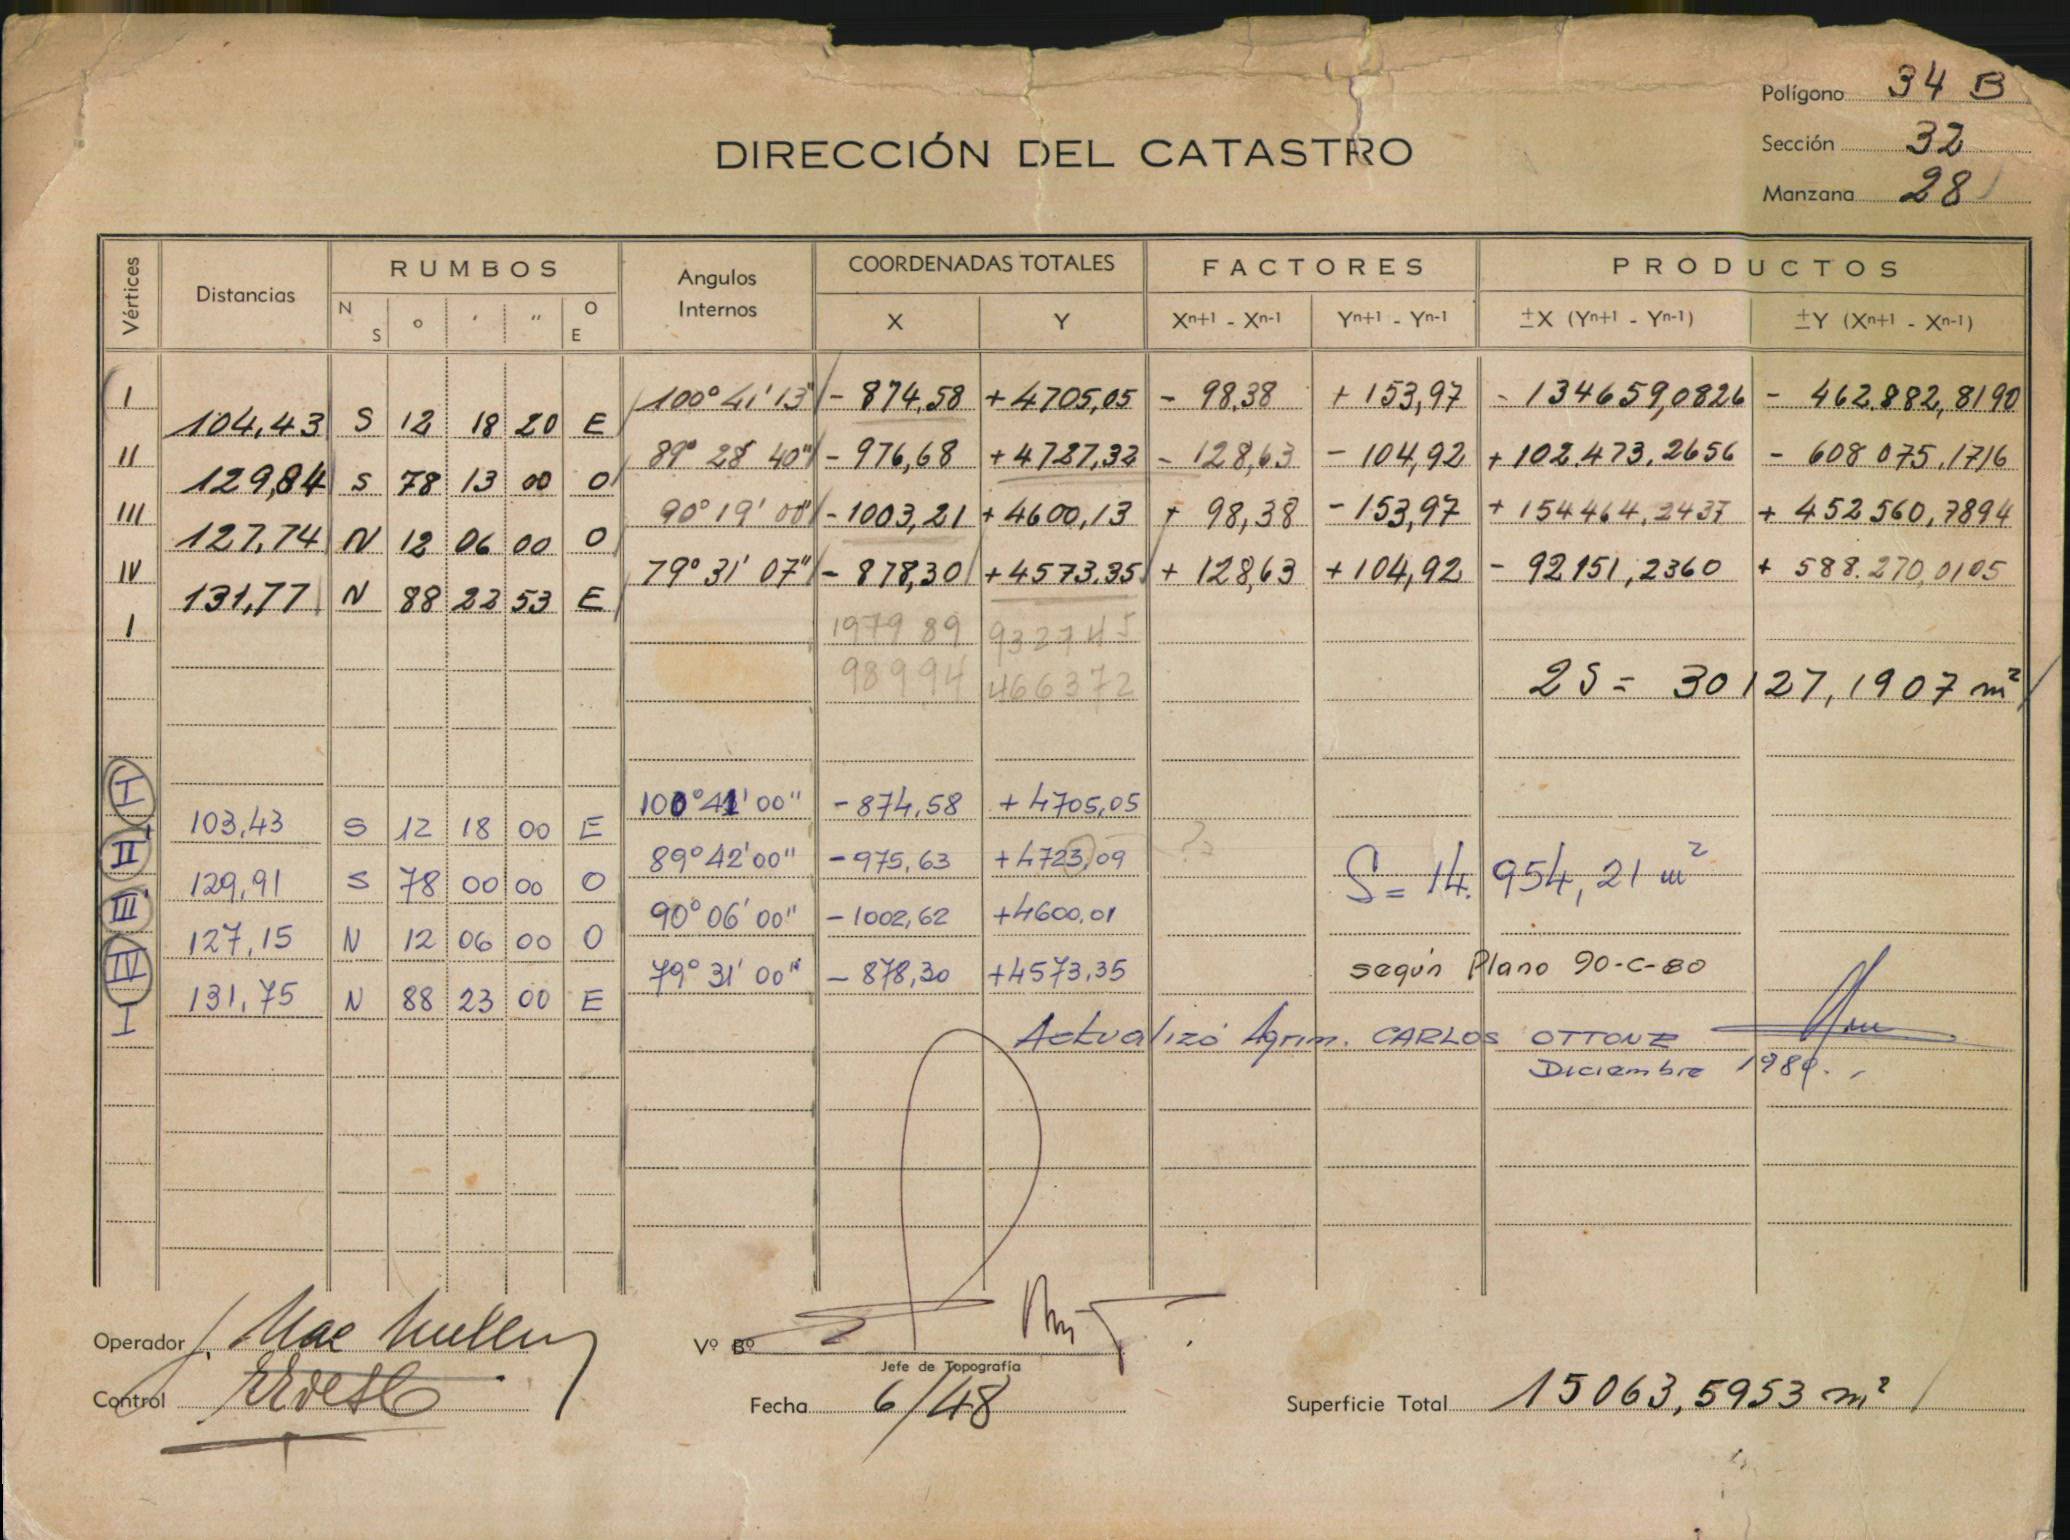 Polígono 34 B
DIRECCIÓN DEL CATASTRO
Sección 32
Manzana 28
Vértices Distancias RUMBOS Angulos Internos COORDENADAS TOTALES FACTORES PRODUCTOS
N S ° ' " O E X Y Xn+1 - Xn-1 Yn+1 - Yn-1 ±X (Yn+1 - Yn-1) ±Y (Xn+1 - Xn-1)
I 100° 41' 13" - 874,58 + 4705,05 - 98,38 + 153,97 - 134659,0826 - 462.882,8190
104,43 S 12 18 20 E
II 89° 28' 40" - 976,68 + 4727,32 - 128,63 - 104,92 + 102.473,2656 - 608 075,1716
129,84 S 78 13 00 O
III 90° 19' 00" - 1003,21 + 4600,13 + 98,38 - 153,97 + 154464,2437 + 452 560,7894
127,74 N 12 06 00 O
IV 79° 31' 07" - 878,30 + 4573,35 + 128,63 + 104,92 - 92151,2360 + 588.270,0105
131,77 N 88 22 53 E
I 1979 89 932745
98994 466372
2S = 30127,1907 m²
I 100° 41' 00" - 874,58 + 4705,05
103,43 S 12 18 00 E
II 89° 42' 00" - 975,63 + 4723,09 ??
S = 14.954,21 m²
129,91 S 78 00 00 O
III 90° 06' 00" - 1002,62 + 4600,01
127,15 N 12 06 00 O
IV 79° 31' 00" - 878,30 + 4573,35
según Plano 90-C-80
131,75 N 88 23 00 E
I
Actualizó Agrim. CARLOS OTTONE
Diciembre 1980.
Operador J. Mac
Vº Bº
Jefe de Topografía
Control
Fecha 6/48
Superficie Total 15063,5953 m²